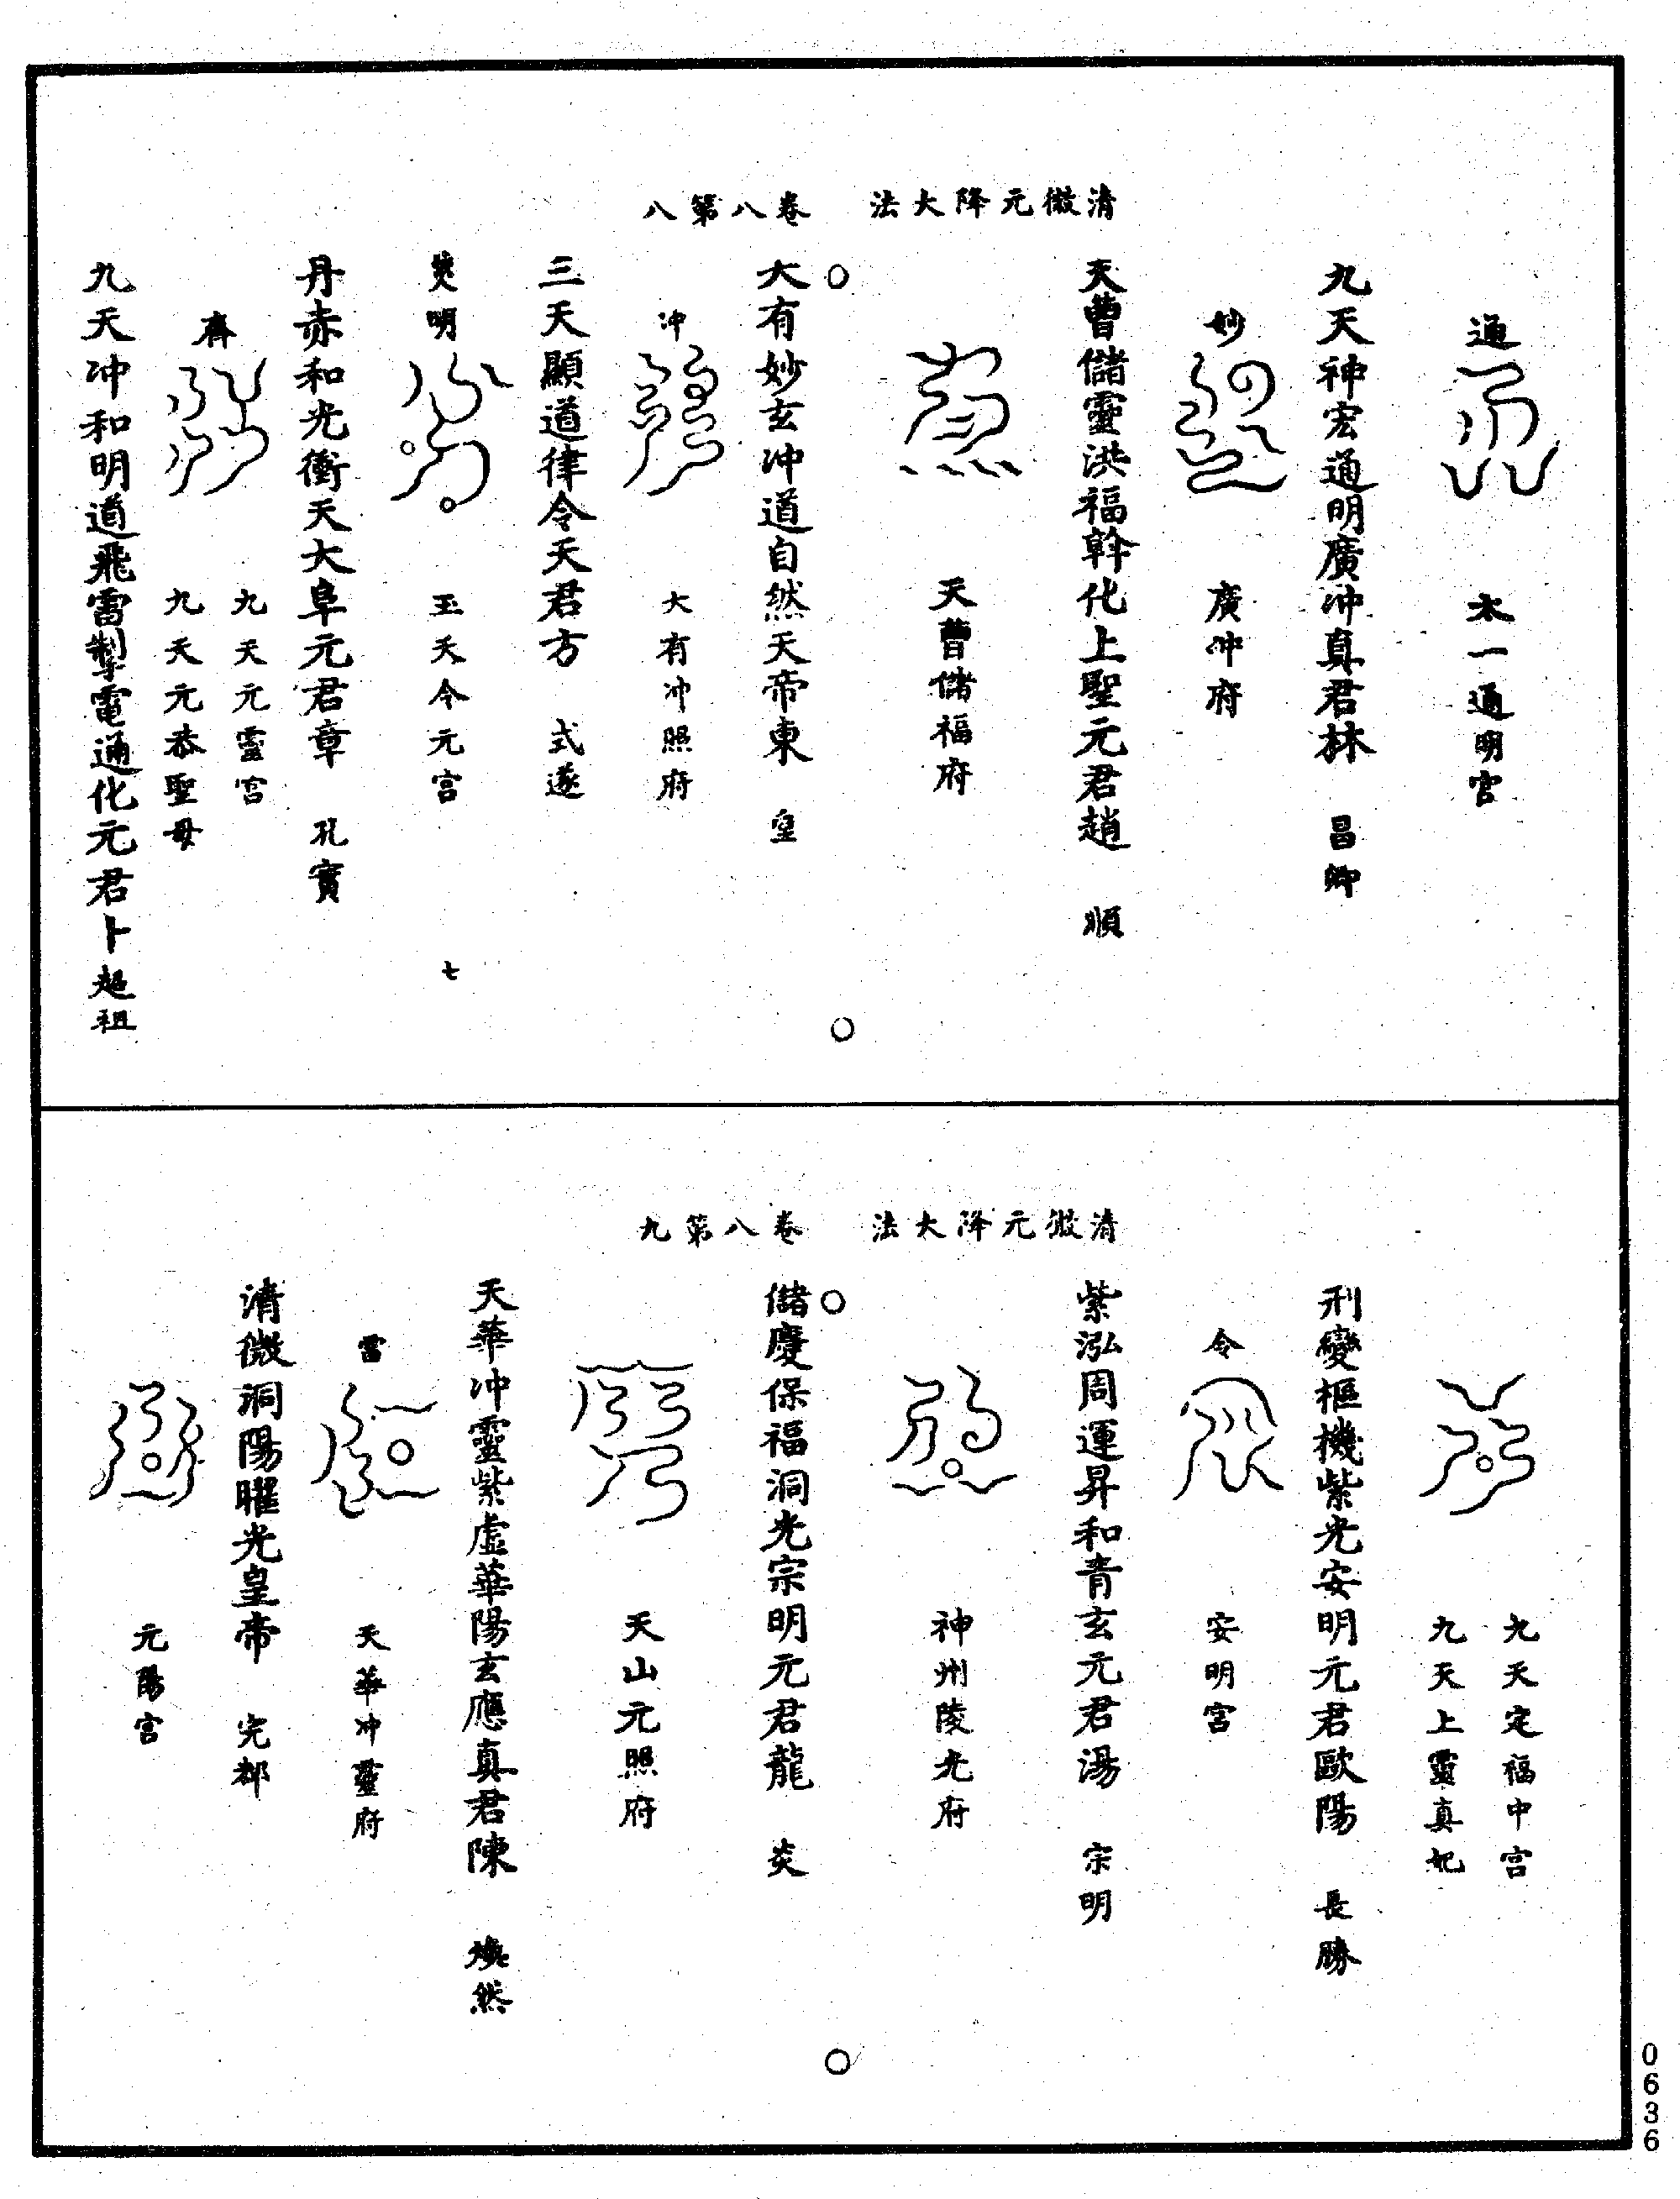 清微元降大法　卷八第八
通
太一通明宮
九天神宏通明廣冲真君林　昌卿
妙
廣冲府
天曹儲靈洪福幹化上聖元君趙　順
天曹儲福府
大有妙玄冲道自然天帝東　皇
冲
大有冲照府
三天顯道律令天君方　式遂
明
玉天令元宮
七
丹赤和光衝天大阜元君章　孔實
齊
九天元靈宮
九天元恭聖母
九天冲和明道飛雷掣電通化元君卜超祖
清微元降大法　卷八第九
九天定福中宮
九天上靈真妃
刑變樞機紫光安明元君歐陽　長勝
令
安明宮
紫泓周運昇和青玄元君湯　宗明
神州陵光府
儲慶保福洞光宗明元君龍　炎
天山元照府
天華冲靈紫虛華陽玄應真君陳　煥然
雷
天華冲靈府
清微洞陽曜光皇帝　完都
元陽宮
0636